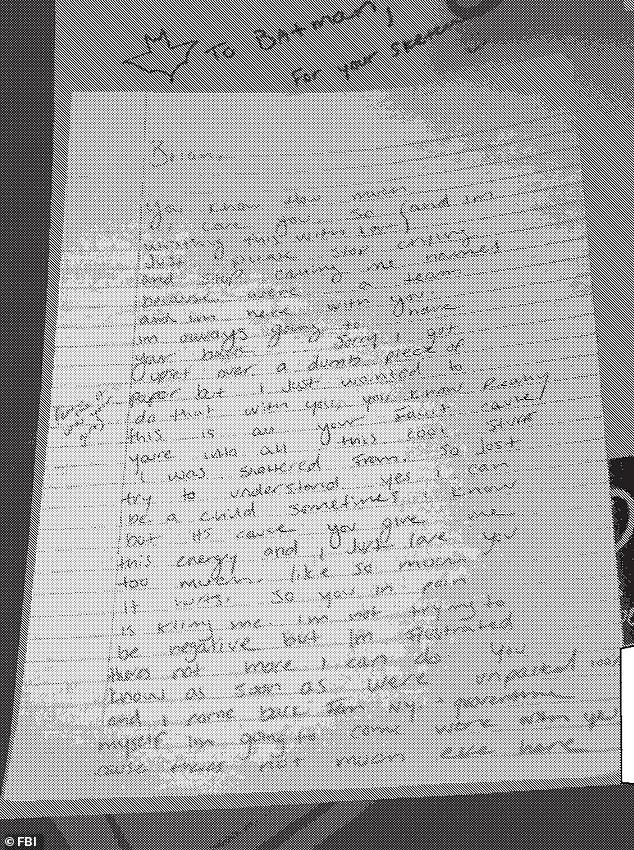 To Batman,
For your
Brian.
You know how much
I care you, so (and im
writing this with love)
Just please stop crying
and stop calling me names
because were a team
and im here with you
im always going to have
your back. Sorry I got
upset over a dumb piece of
paper but I just wanted to
do that with you, you know really
this is all your fault cause
youre into all this cool stuff
I was sheltered from. So Just
try to understand yes I can
be a child sometimes I know
but its cause you give me
this energy and I Just love you
too much. like so much
it hurts. So you in pain
is killing me. im not trying to
be negative but Im frustrated
theres not more I can do. You
know as soon as were unpacked
and I come back from NY,
myself Im going to come work with you
cause theres not much else here